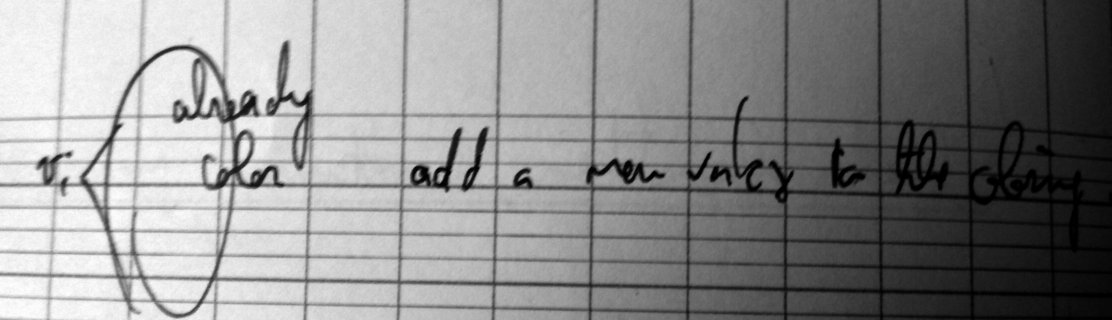 already
v₁ color add a new vertex to the coloring